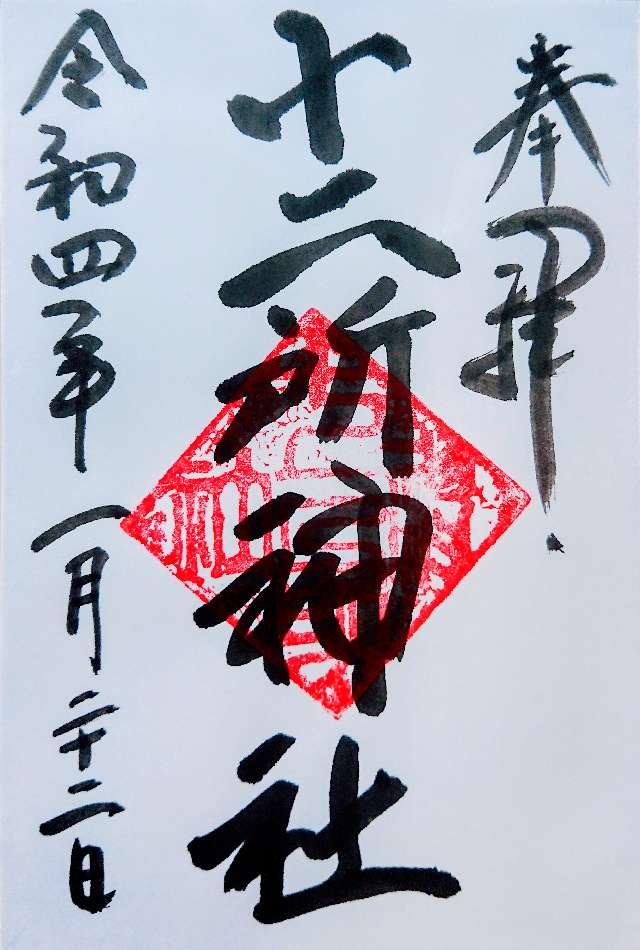 奉拝
十二所神社
令和四年一月二十二日